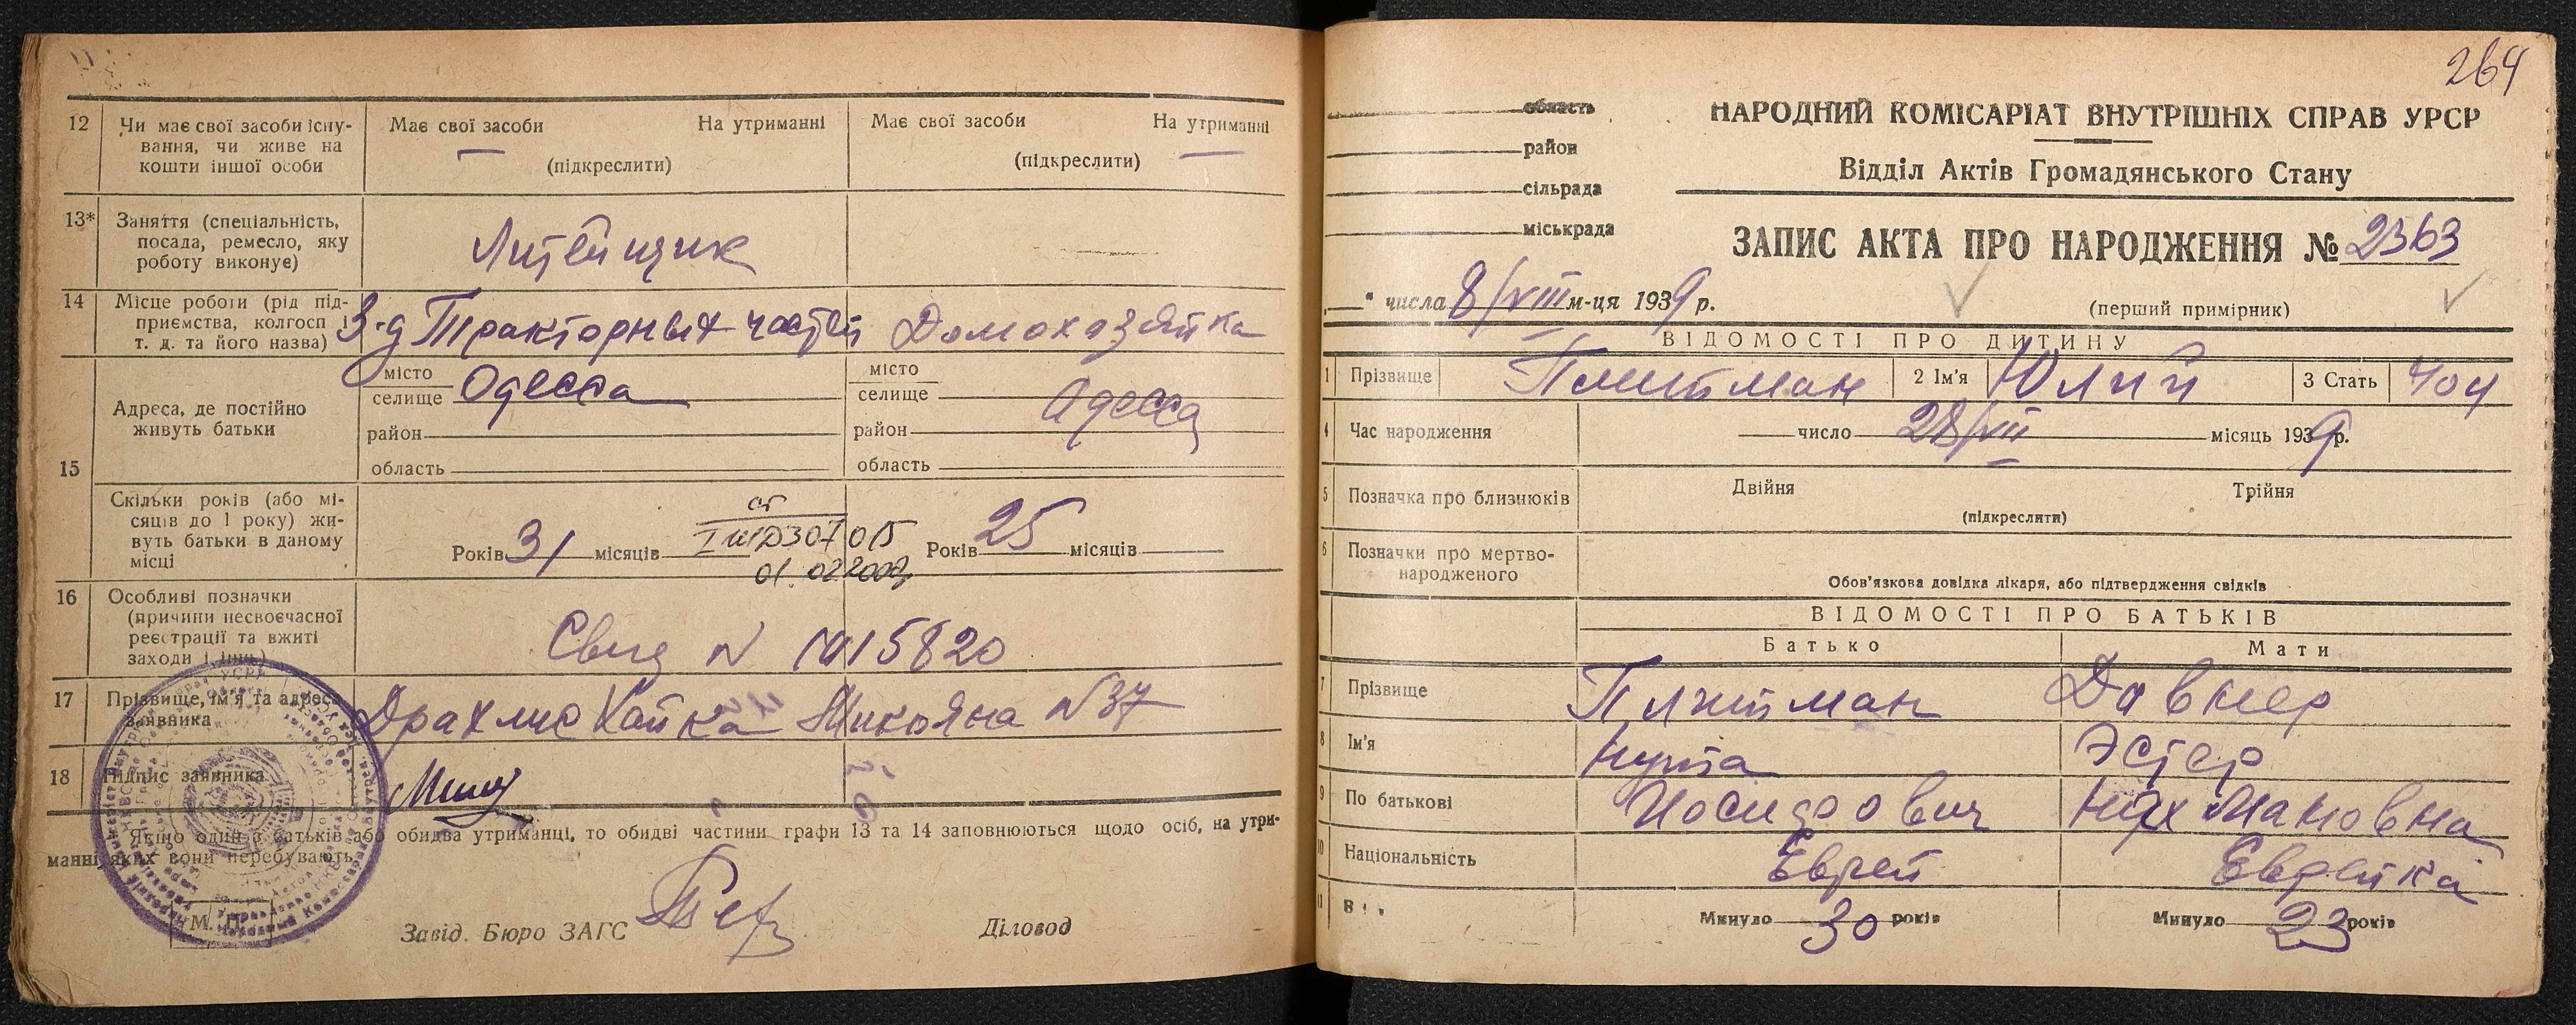 12 Чи має свої засоби існу-
вання, чи живе на
кошти іншої особи
Має свої засоби На утриманні
(підкреслити)
Має свої засоби На утриманні
(підкреслити)
13* Заняття (спеціальність,
посада, ремесло, яку
роботу виконує)
Литейщик
14 Місце роботи (рід під-
приємства, колгосп і
т. д. та його назва)
З-д Тракторных частей
Домохазяйка
15 Адреса, де постійно
живуть батьки
місто
селище Одесса
район
область
місто
селище Одесса
район
область
Скільки років (або мі-
сяців до 1 року) жи-
вуть батьки в даному
місці
Років 31 місяців
307015
01.02.2007
Років 25 місяців
16 Особливі позначки
(причини несвоєчасної
реєстрації та вжиті
заходи і інш.)
Свид N 15820
17 Прізвище, ім'я та адреса
заявника
Микояна N37
18 Підпис заявника
Якщо один з батьків або обидва утриманці, то обидві частини графи 13 та 14 заповнюються щодо осіб, на утри-
манні яких вони перебувають.
М. П.
Завід. Бюро ЗАГС Діловод
264
область
район
сільрада
міськрада
НАРОДНИЙ КОМІСАРІАТ ВНУТРІШНІХ СПРАВ УРСР
Відділ Актів Громадянського Стану
ЗАПИС АКТА ПРО НАРОДЖЕННЯ № 2363
" числа 8/VIII м-ця 1939 р.
(перший примірник)
ВІДОМОСТІ ПРО ДИТИНУ
1 Прізвище 2 Ім'я Юлий 3 Стать чол
4 Час народження число 28/VII місяць 1939 р.
5 Позначка про близнюків Двійня Трійня
(підкреслити)
6 Позначки про мертво-
народженого
Обов'язкова довідка лікаря, або підтвердження свідків
ВІДОМОСТІ ПРО БАТЬКІВ
Батько Мати
7 Прізвище
8 Ім'я Нута Эстер
9 По батькові Нахмановна
10 Національність Еврей Еврейка
11 Вік Минуло 30 років Минуло 23 років